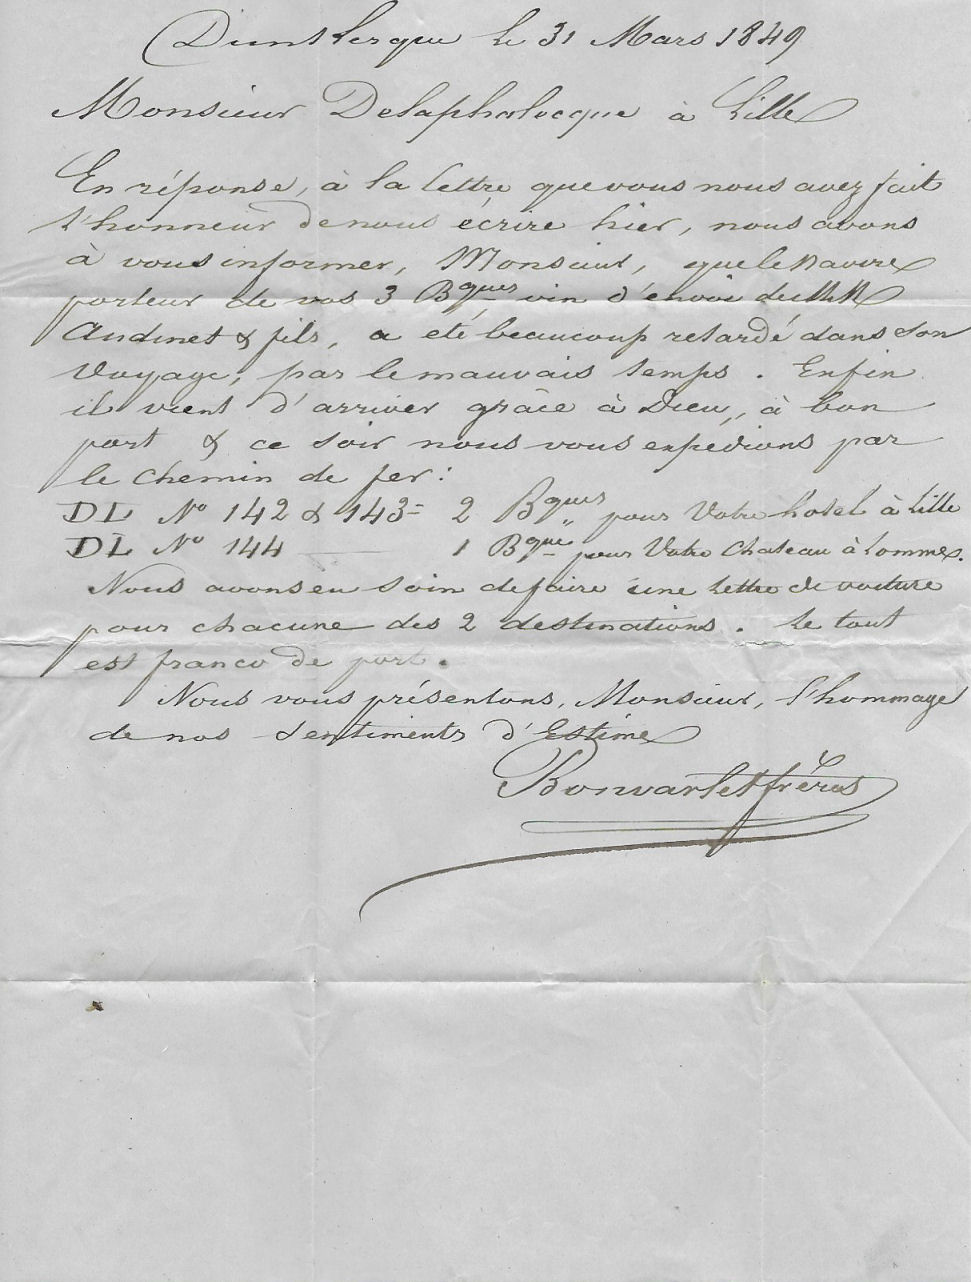 Dunkerque le 31 Mars 1849
Monsieur Delaphalecque à Lille
En réponse, à la lettre que vous nous avez fait
l'honneur de nous écrire hier, nous avons
à vous informer, Monsieur, que le navire
porteur de vos 3 Bques vin d'envoi de MM
Audinet & fils, a été beaucoup retardé dans son
Voyage, par le mauvais temps. Enfin
il vient d'arriver grâce à Dieu, à bon
port & ce soir nous vous expedions par
le chemin de fer:
DL No 142 & 143 = 2 Bques pour Votre hotel à Lille
DL No 144 — 1 Bque pour Votre Chateau à Lomme.
Nous avons eu soin de faire une lettre de voiture
pour chacune des 2 destinations. Le tout
est franco de port.
Nous vous présentons, Monsieur, l'hommage
de nos sentiments d'Estime
Bonvarlet frères